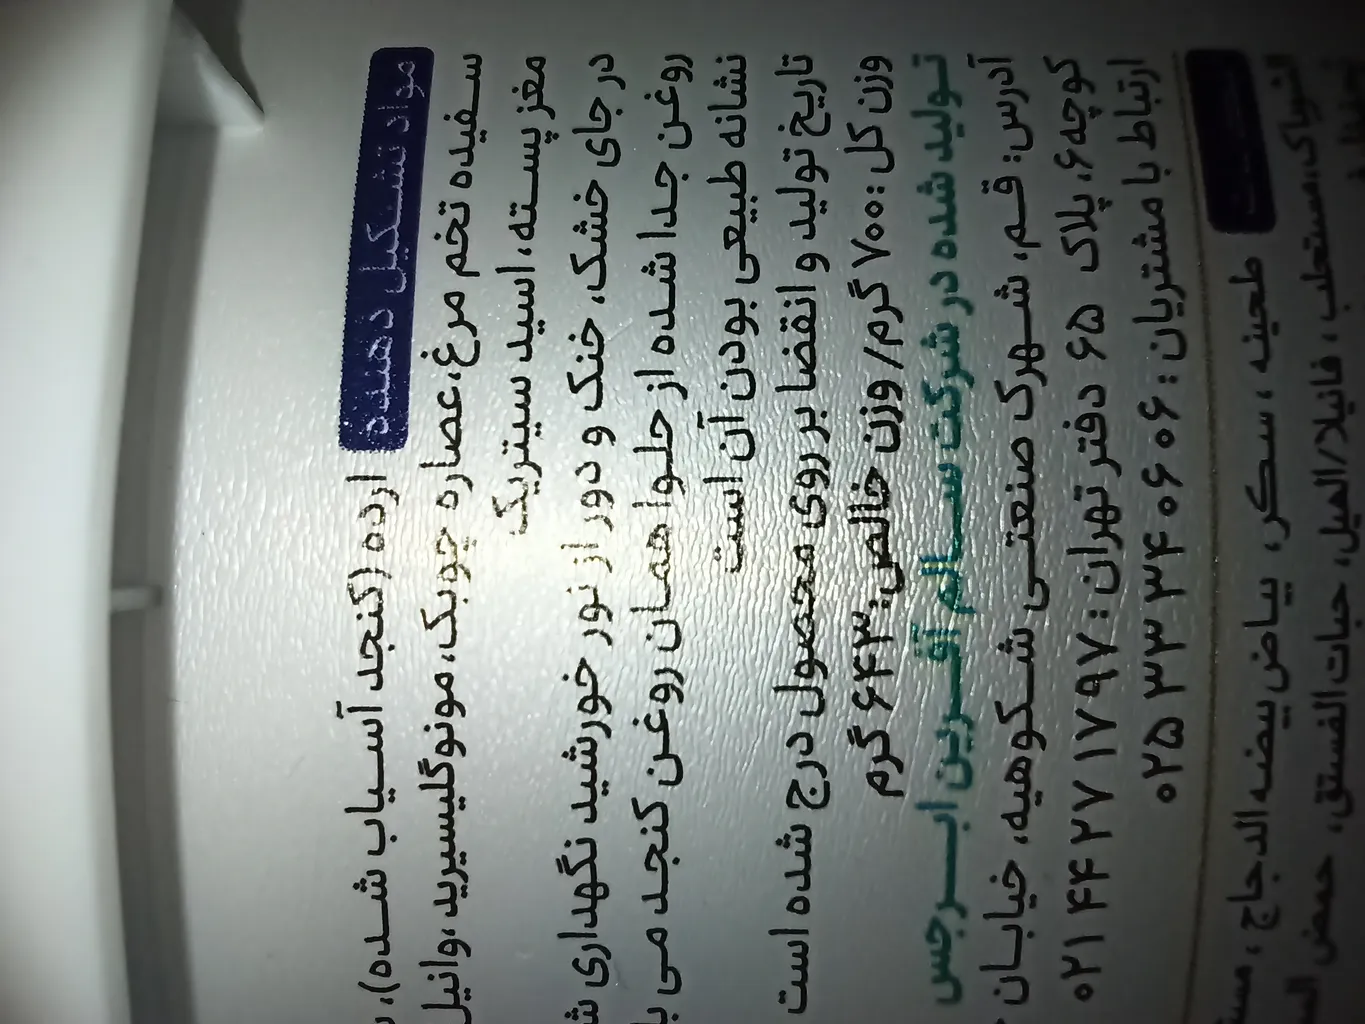 مواد تشکیل دهنده
ارده (کنجد آسیاب شده)،
سفیده تخم مرغ، عصاره چوبک، مونوگلیسیرید، وانیل
مغز پسته، اسید سیتریک
در جای خشک، خنک و دور از نور خورشید نگهداری
روغن جدا شده از حلوا همان روغن کنجد می
نشانه طبیعی بودن آن است
تاریخ تولید و انقضا بر روی محصول درج شده است
وزن کل: ۷۰۰ گرم/ وزن خالص: ۶۴۳ گرم
تولید شده در شرکت سالم آفرین ابرجس
آدرس: قم، شهرک صنعتی شکوهیه، خیابان
کوچه ۶، پلاک ۶۵ دفتر تهران: ۰۲۱۴۴۲۷۱۷۹۷
ارتباط با مشتریان: ۰۲۵۳۳۳۴۰۶۰۶
طحینه، سکر، بیاض بیضه الدجاج،
مستحلب، فانیلا/الهیل، حبات الفستق، حمض